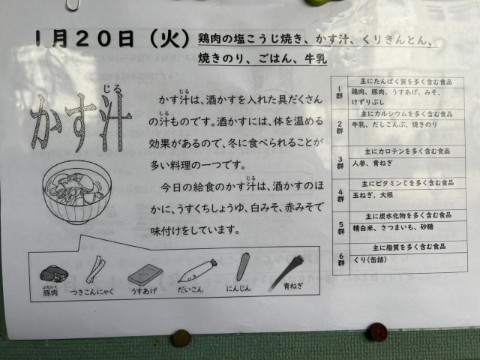 1月20日(火)鶏肉の塩こうじ焼き、かす汁、くりきんとん、
焼きのり、ごはん、牛乳
かす汁
じる
かす汁は、酒かすを入れた具だくさん
の汁ものです。酒かすには、体を温める
効果があるので、冬に食べられることが
多い料理の一つです。
今日の給食のかす汁は、酒かすのほ
かに、うすくちしょうゆ、白みそ、赤みそで
味付けをしています。
豚肉
つきこんにゃく
うすあげ
だいこん
にんじん
青ねぎ
1群
主にたんぱく質を多く含む食品
鶏肉、豚肉、うすあげ、みそ、
けずりぶし
2群
主にカルシウムを多く含む食品
牛乳、だしこんぶ、焼きのり
3群
主にカロテンを多く含む食品
人参、青ねぎ
4群
主にビタミンCを多く含む食品
玉ねぎ、大根
5群
主に炭水化物を多く含む食品
精白米、さつまいも、砂糖
6群
主に脂質を多く含む食品
くり(缶詰)